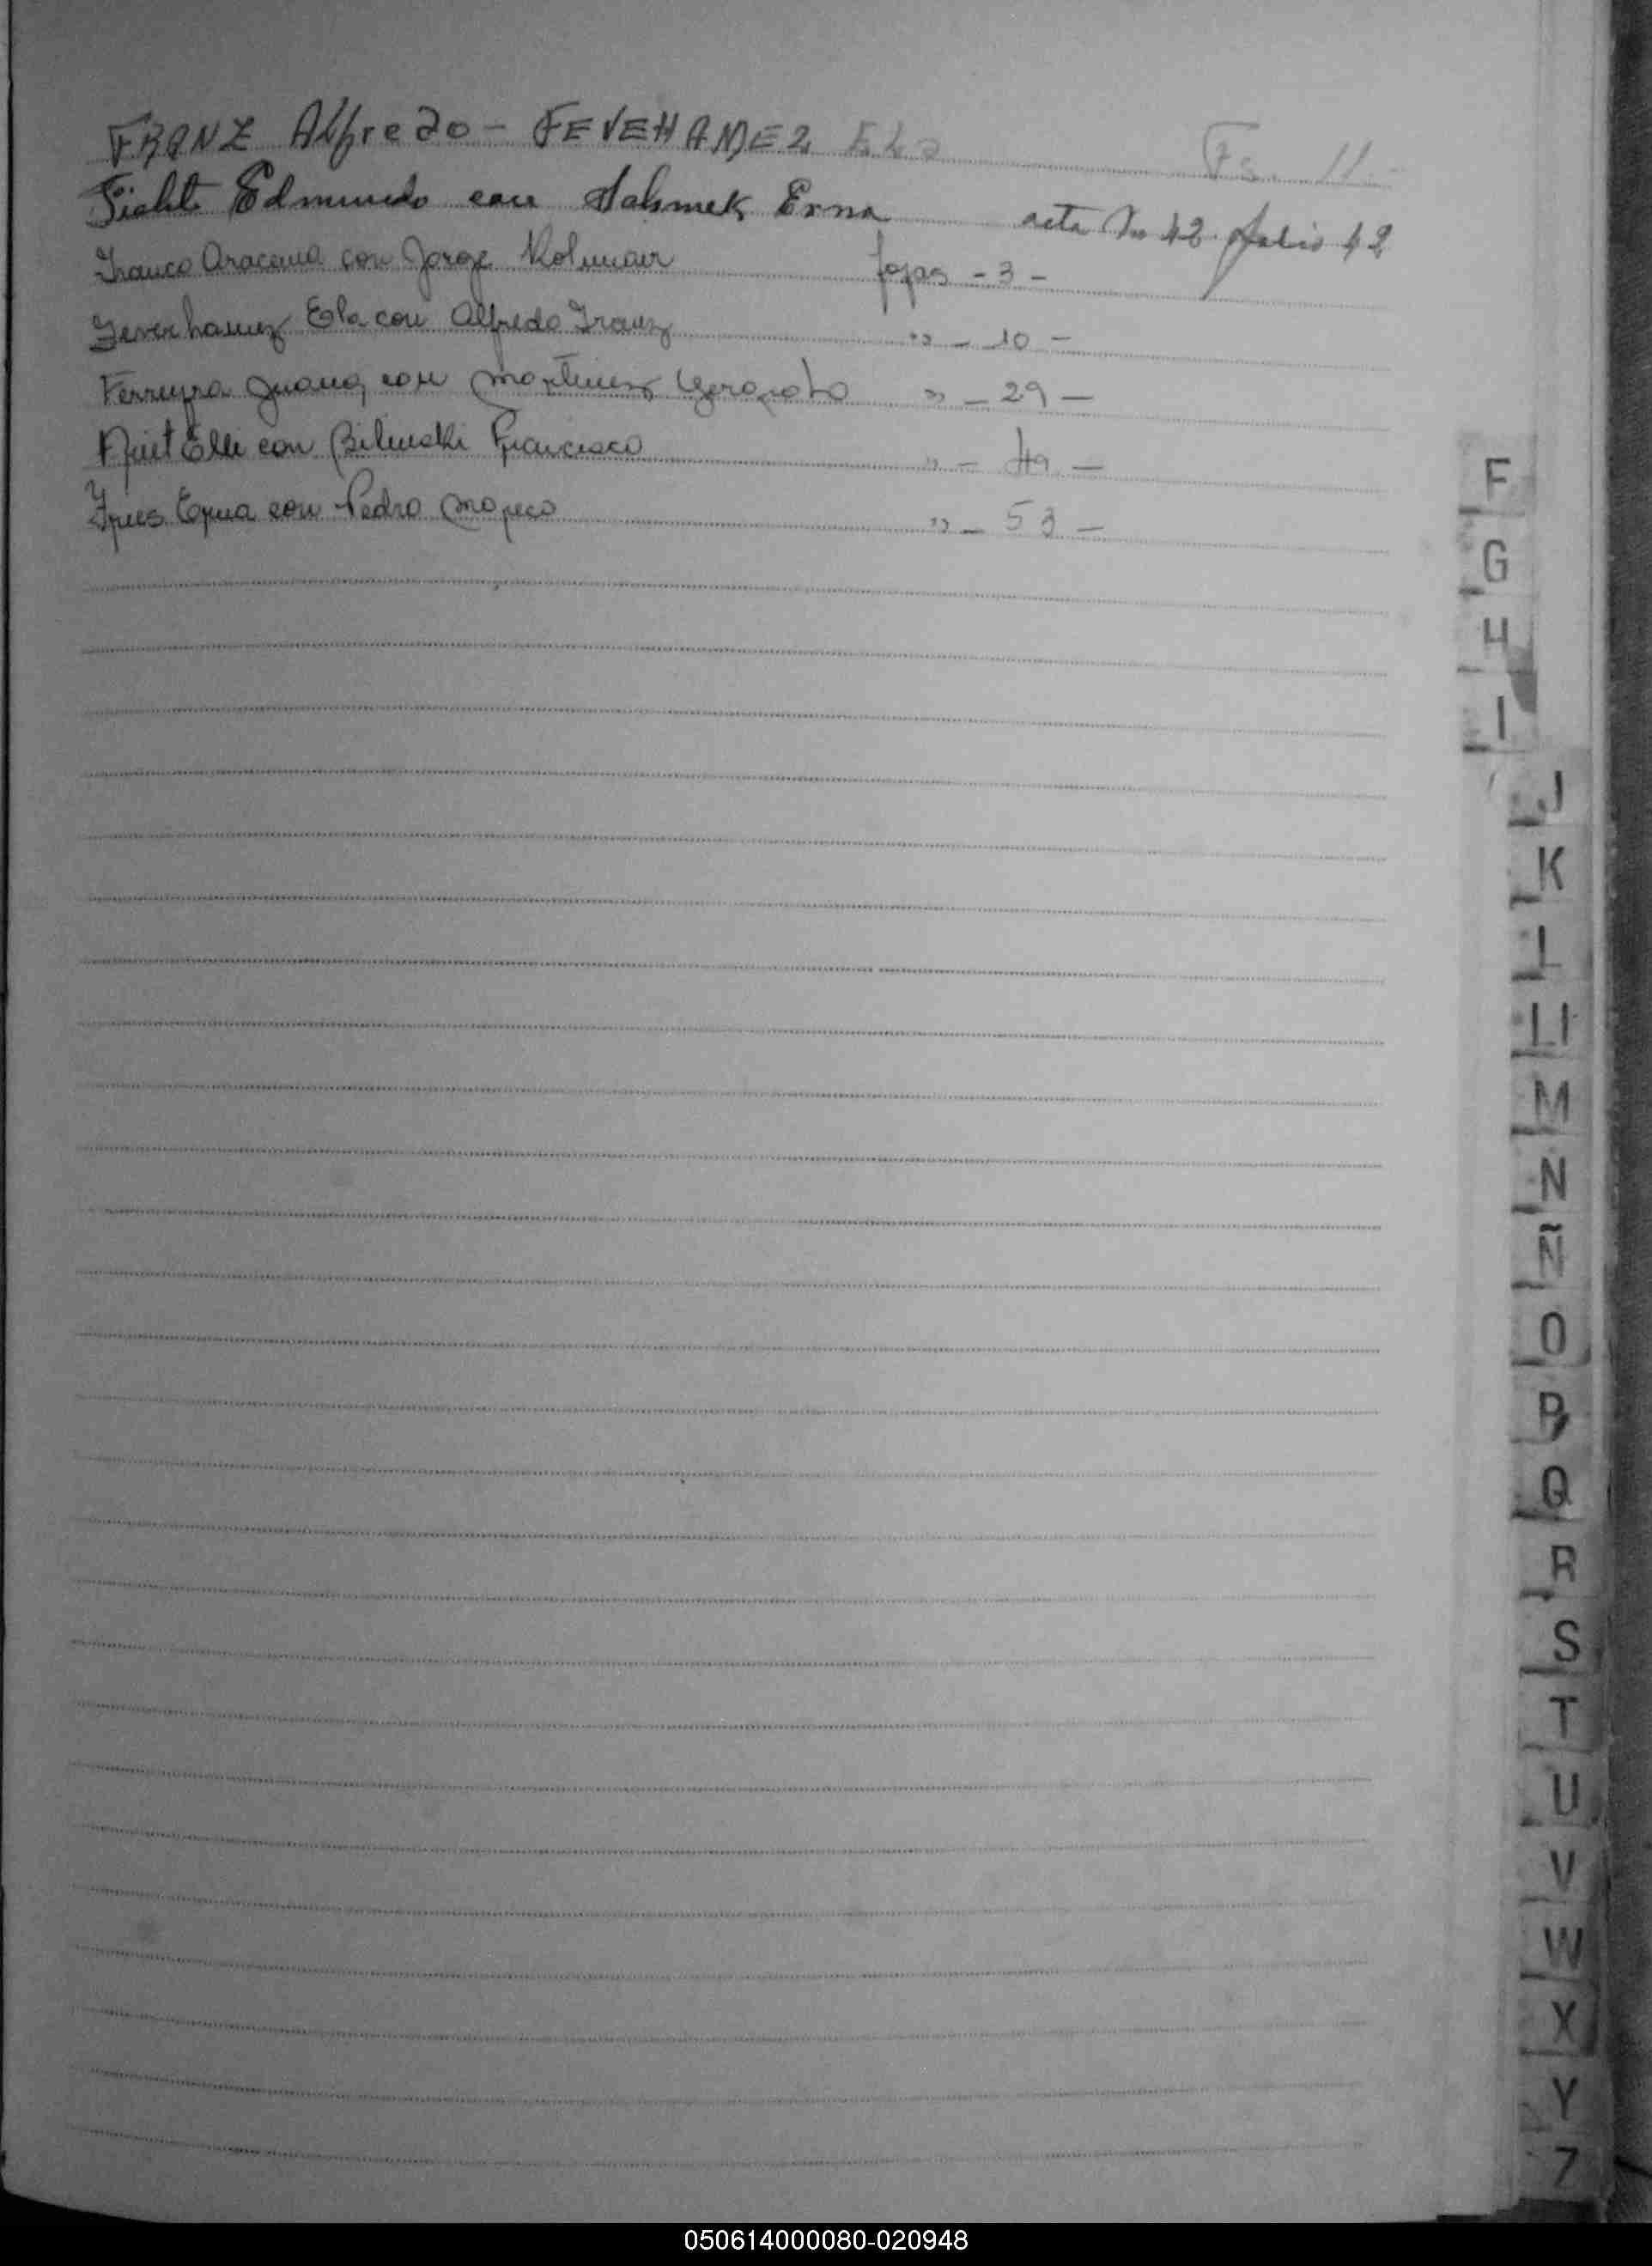 FRANZ Alfredo - FEVEHAMEZ Ela Fs. 11 -
Ficht Edmundo con Erna acta No 42 folio 42
Franco Aracena con Jorge Kolmaier fojas - 3 -
Feverhamez Ela con Alfredo Franz " - 10 -
Ferreyra Juana con Martinez " - 29 -
Elli con Bilinski Francisco " - 49 -
con Pedro " - 53 -
F
G
H
I
J
K
L
Ll
M
N
Ñ
O
P
Q
R
S
T
U
V
W
X
Y
Z
050614000080-020948